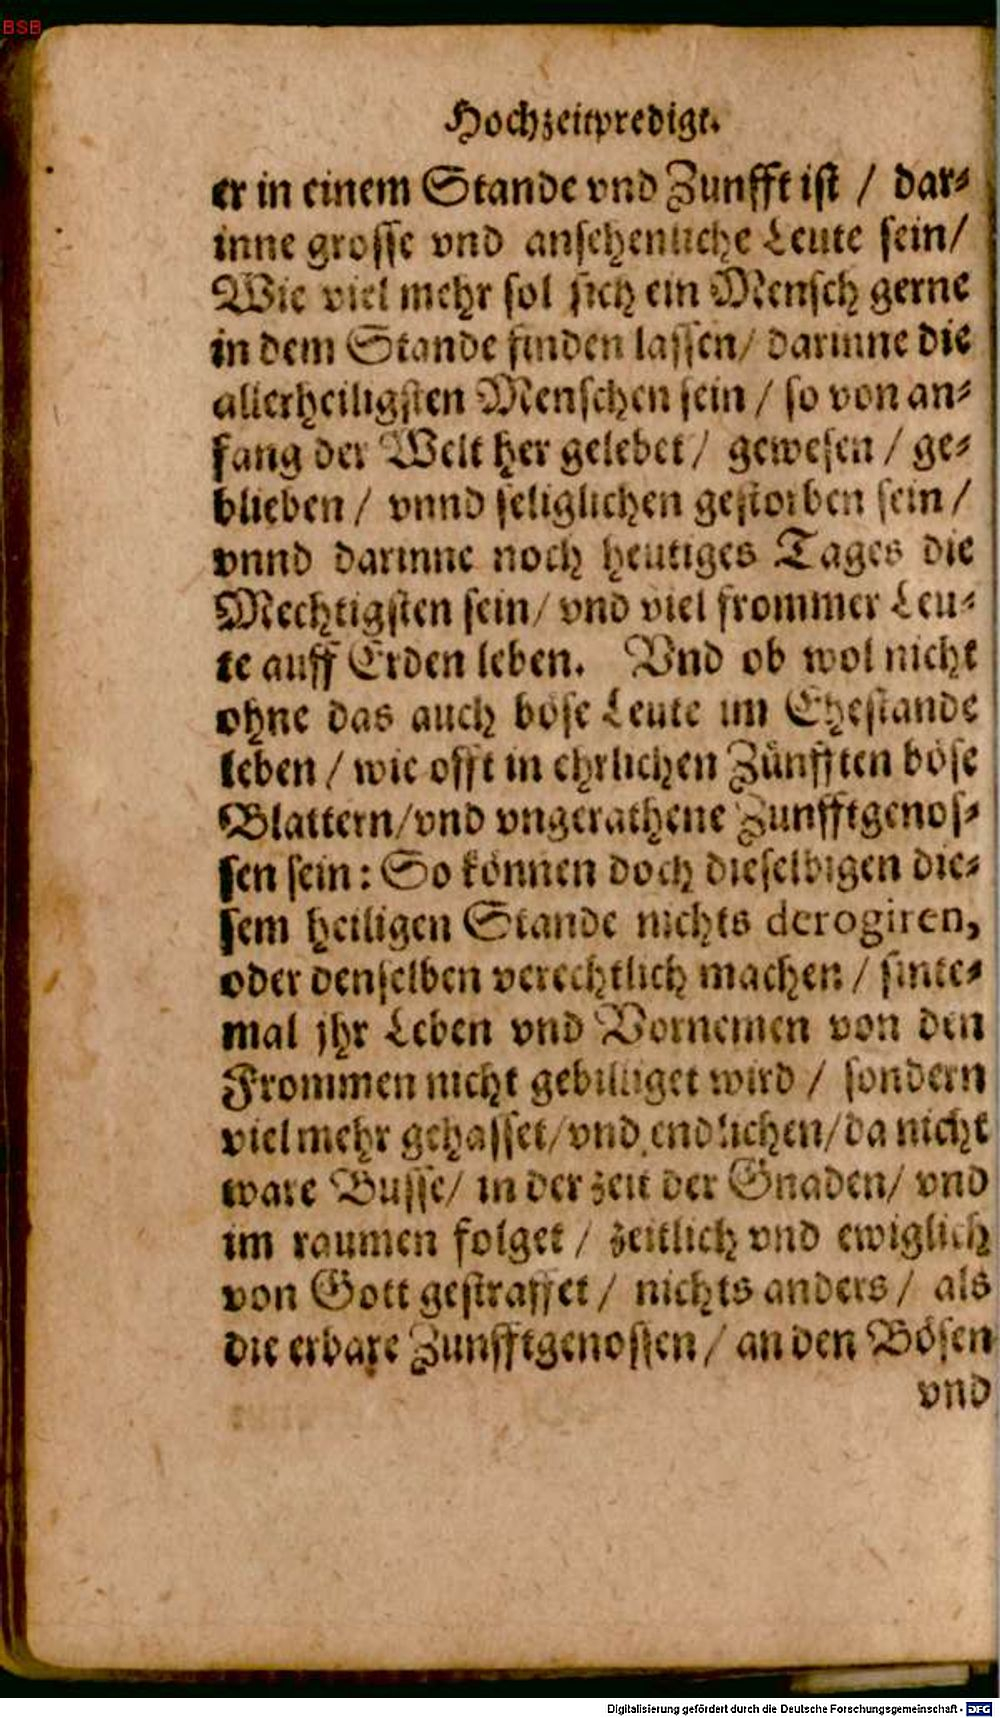 BSB
Hochzeitpredigt.
er in einem Stande vnd Zunfft ist / dar⸗
inne grosse vnd ansehenliche Leute sein/
Wie viel mehr sol sich ein Mensch gerne
in dem Stande finden lassen/ darinne die
allerheiligsten Menschen sein / so von an⸗
fang der Welt her gelebet / gewesen / ge⸗
blieben / vnnd seliglichen gestorben sein /
vnnd darinne noch heutiges Tages die
Mechtigsten sein/ vnd viel frommer Leu⸗
te auff Erden leben. Vnd ob wol nicht
ohne das auch böse Leute im Ehestande
leben / wie offt in ehrlichen Zünfften böse
Blattern/vnd vngerathene Zunfftgenos⸗
sen sein: So können doch dieselbigen die⸗
sem heiligen Stande nichts derogiren,
oder denselben verechtlich machen / sinte⸗
mal jhr Leben vnd Vornemen von den
Frommen nicht gebilliget wird / sondern
vielmehr gehasset/vnd endlichen/da nicht
ware Busse/ in der zeit der Gnaden/ vnd
im raumen folget / zeitlich vnd ewiglich
von Gott gestraffet / nichts anders / als
die erbare Zunfftgenossen / an den Bösen
vnd
Digitalisierung gefördert durch die Deutsche Forschungsgemeinschaft - DFG